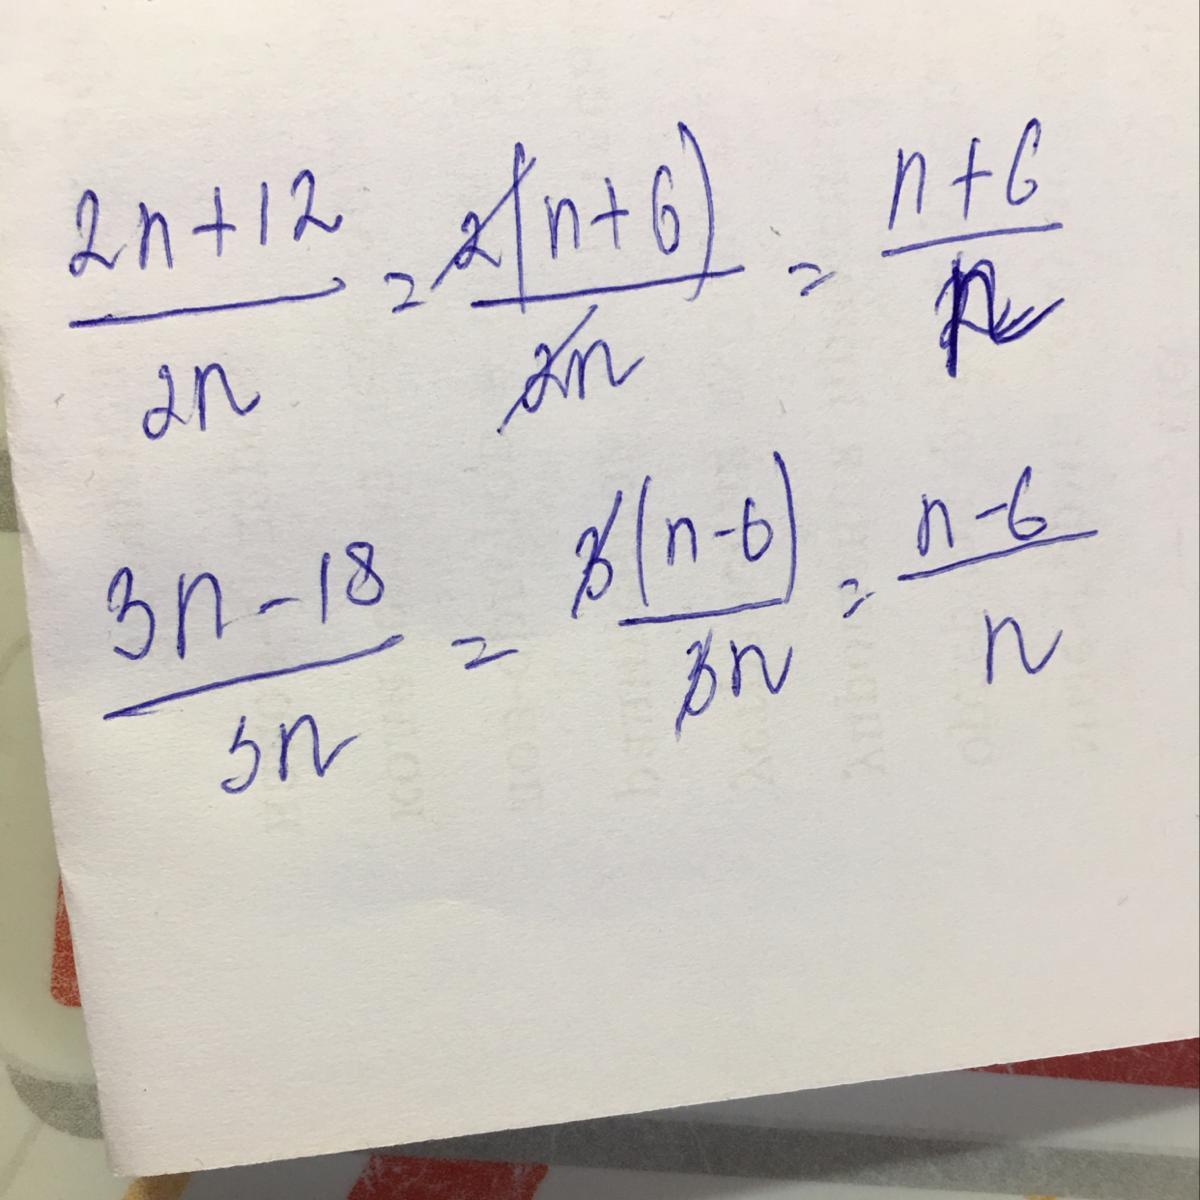 (2n+12)/(2n) = 2(n+6)/(2n) = (n+6)/n
(3n-18)/(3n) = 3(n-6)/(3n) = (n-6)/n